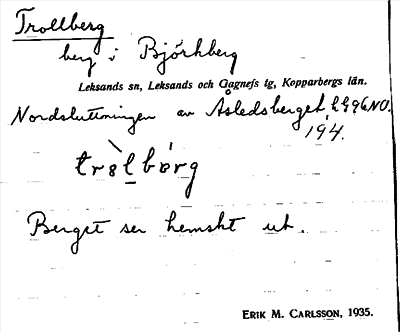 Trollberg
berg i Björkberg
Leksands sn, Leksands och Gagnefs tg, Kopparbergs län.
Nordsluttningen av Åsledsberget
194.
trɷ̀lbærg
Berget ser hemskt ut.
ERIK M. CARLSSON, 1935.